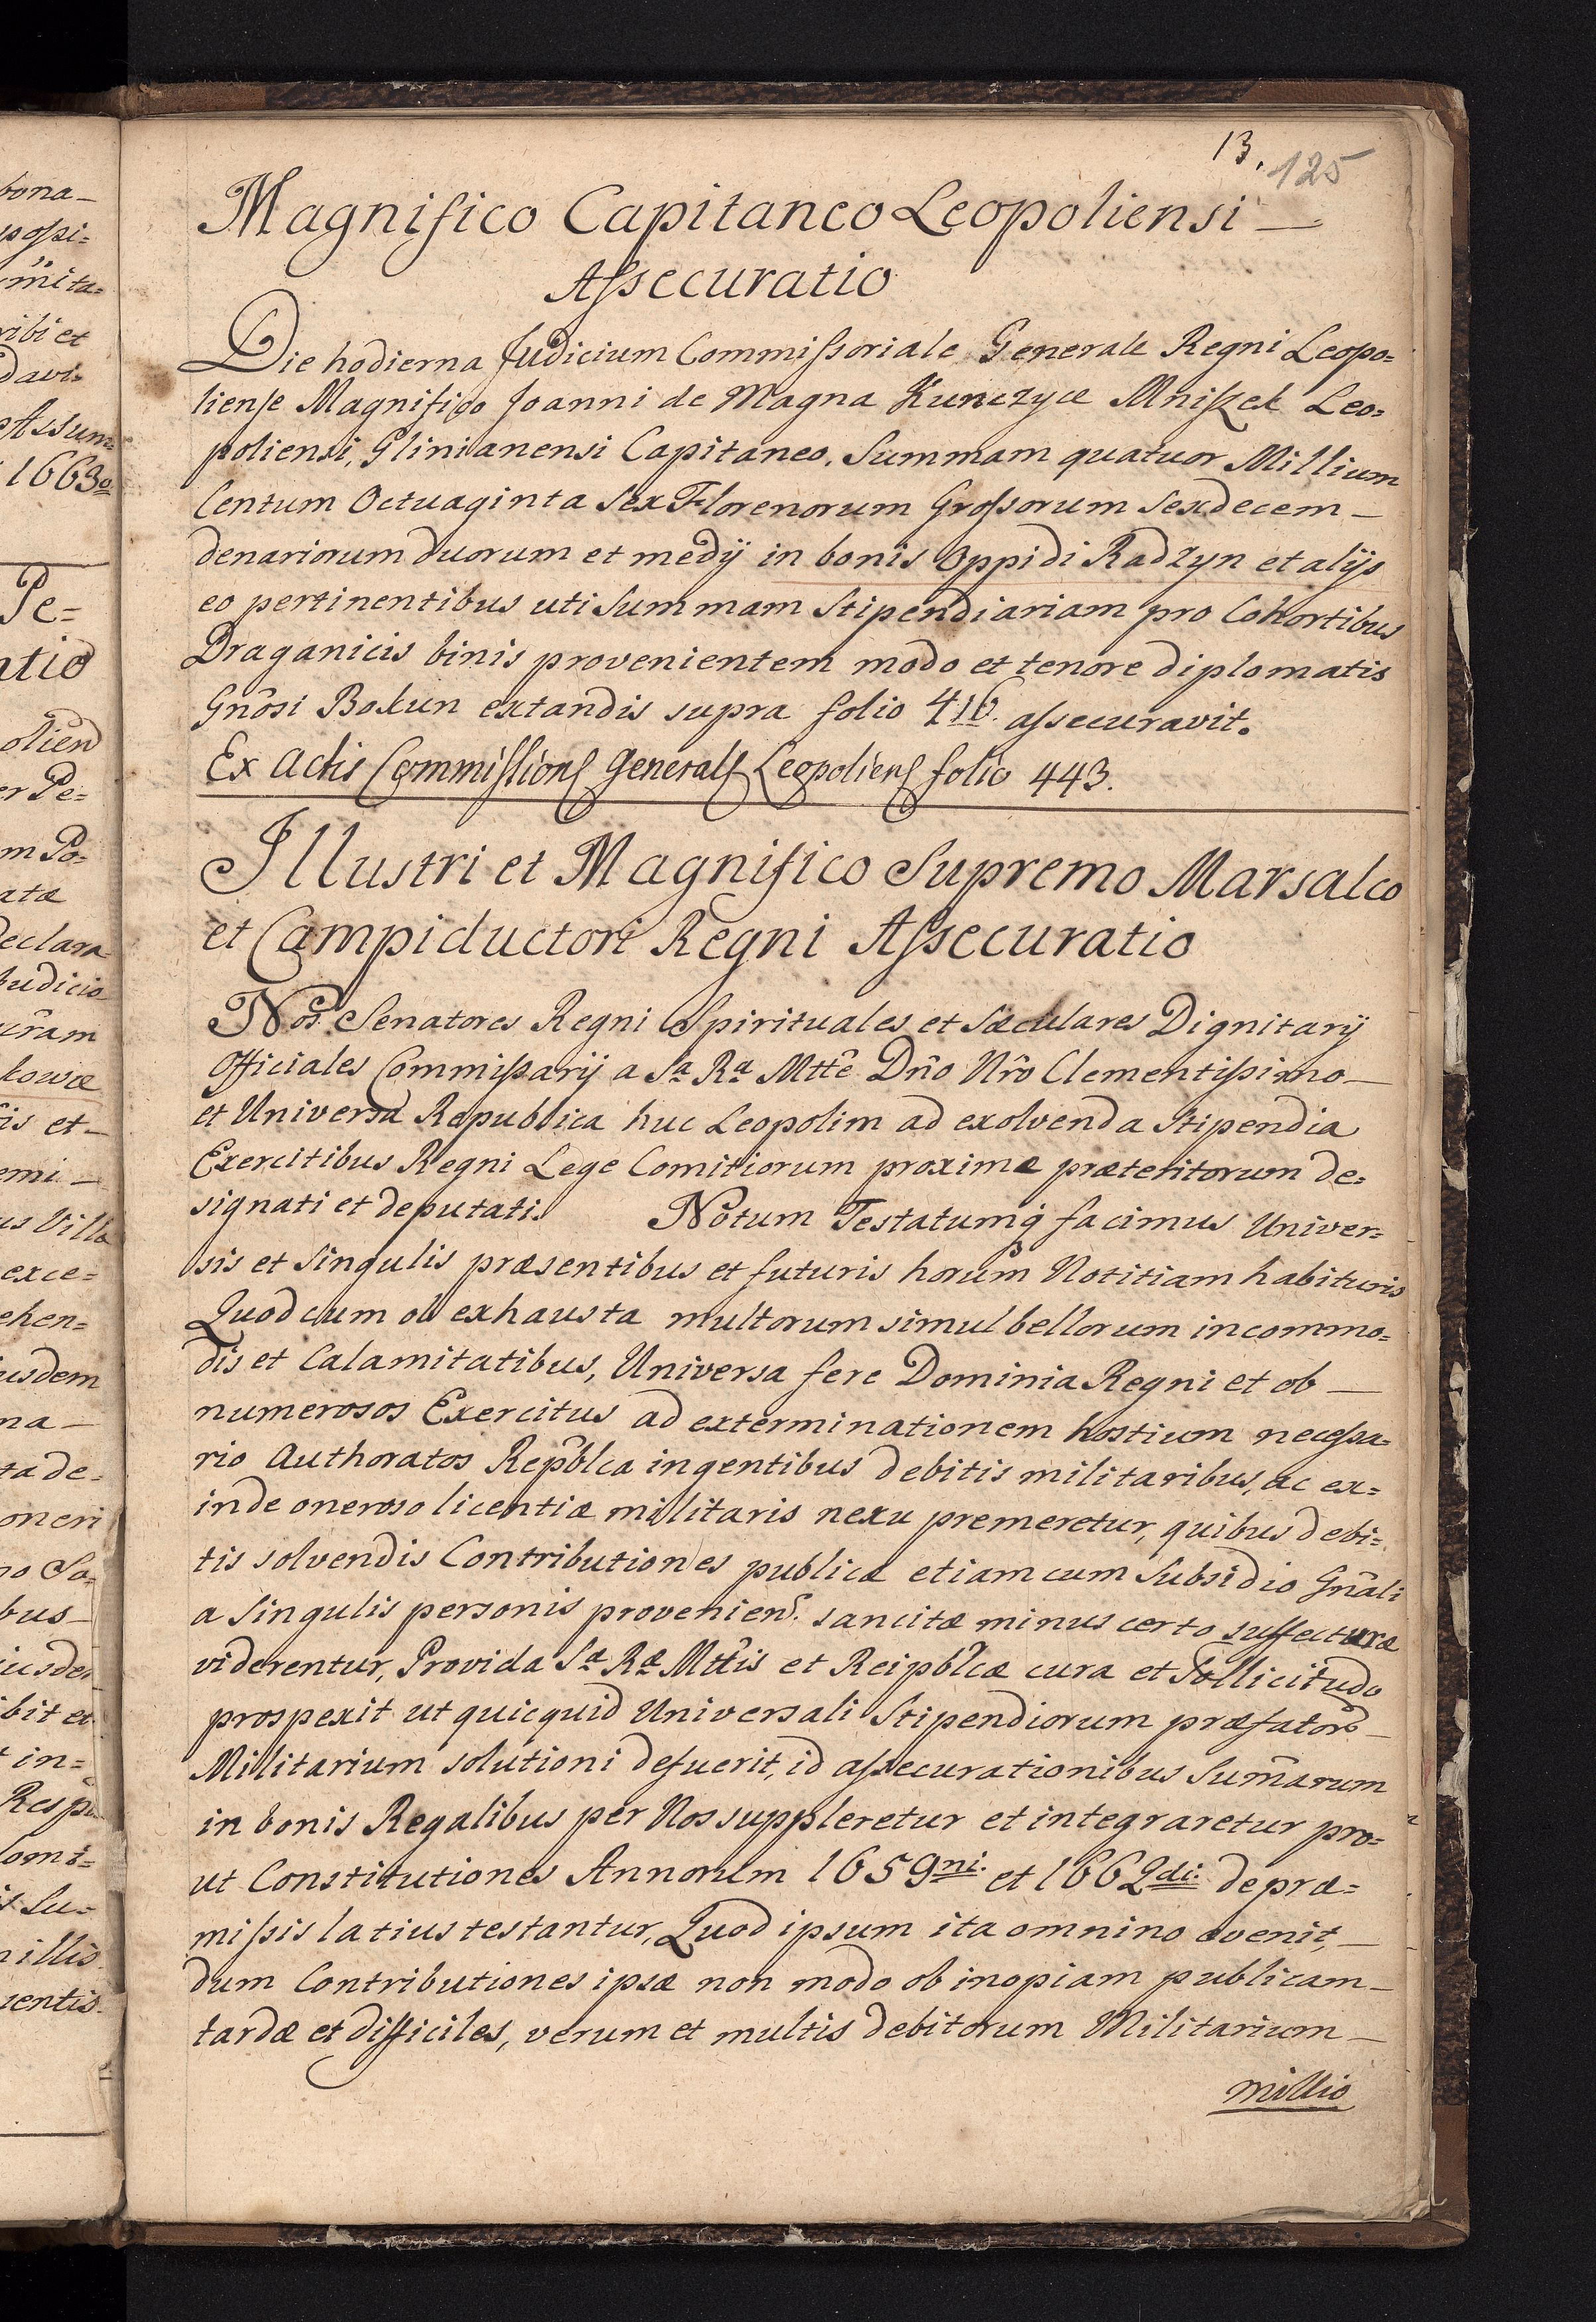 13.
125
Magnifico Capitaneo Leopoliensi —
Assecuratio
Die hodierna Judicium Commissoriale Generale Regni Leopo=
liense Magnifico Joanni de Magna Kunczyce Mniszek Leo=
poliensi, Glinianensi Capitaneo, Summam quatuor Millium
Centum Octuaginta Sex Florenorum Grossorum Sexdecem —
denariorum duorum et medij in bonis Oppidi Radzyn et alijs
eo pertinentibus uti Summam Stipendiariam pro Cohortibus
Draganicis binis provenientem modo et tenore diplomatis
Gnôsi Bokun extandis supra folio 416. assecuravit.
Ex Actis Commissions Generals Leopoliens folio 443.
Illustri et Magnifico Supremo Marsalco
et Campiductori Regni Assecuratio
Nos Senatores Regni Spirituales et Sæculares Dignitarij
Officiales Commissarij a Sa Ra Mtte Dño Nrô Clementissimo —
et Universa Republica huc Leopolim ad exolvenda Stipendia
Exercitibus Regni Lege Comitiorum proxime præteritorum de=
signati et deputati. Notum Testatumq facimus Univer=
sis et Singulis præsentibus et futuris horum Notitiam habituris
Quod cum ob exhausta multorum simul bellorum incommo=
dis et Calamitatibus, Universa fere Dominia Regni et ob —
numerosos Exercitus ad exterminationem hostium necessa=
rio Authoratos Repblca ingentibus debitis militaribus, ac ex=
inde oneroso licentiæ militaris nexu premeretur, quibus debi=
tis solvendis Contributiones publicæ etiam cum Subsidio Gnâli
a Singulis personis provenien. sancitæ minus certo suffecturæ
viderentur, Provida Sæ Ræ Mttis et Reipblcæ cura et Sollicitudo
prospexit ut quicquid Universali Stipendiorum præfator —
Militarium solutioni defuerit, id assecurationibus Sumarum
in bonis Regalibus per Nos suppleretur et integraretur pro=
ut Constitutiones Annorum 1659ni. et 1662di. de præ=
missis latius testantur, Quod ipsum ita omnino evenit, —
dum Contributiones ipsæ non modo ob inopiam publicam —
tardæ et difficiles, verum et multis debitorum Militarium —
millio
bona —
mita=
ribi et
Davi=
Assum=
1663o
Pe=
atio
olien
er Pe=
m Po=
atæ
declara
Judicio
kowæ
is et —
emi —
us Villa
exce=
ehen=
usdem
na —
ta de=
oneri
bus —
bit et
in=
illis